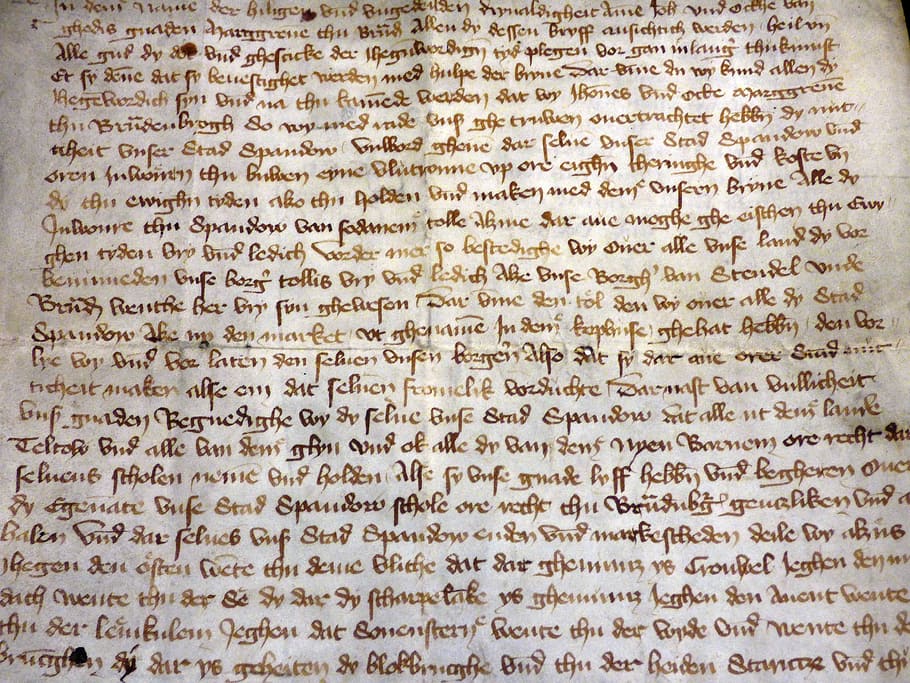 In dem Name der hiligen vnd vngedeilden dryualdigheit Ame Joh vnd Ocke van
ghodis gnaden Marggreue thu Brand Allen dy dessen bryff ansichtich werden heil vn
Alle gud dy dat vnd ghescheke der Jhegenwordign tyd plegen vor gan in lang thukunft
Et sy dene dat sy beuestighet werden med hulpe der bryue Dar vme du wy kund allen dy
Jhegewordich syn vnd na thu kamede werden dat wy Jhones vnd Ocke Marggreue
thu Brandenborgh So wy med rade vnser ghetruwen ouertrachtet hebbn dy nut
ticheit vnser Stad Spandow vulbord gheue dar selue vnser Stad Spandow vnd
oren Inwonen thu buwen eyne vlutronne vp ore eighn theringhe vnd koste vn
dy thu ewighn tyden also thu holden vnd maken med dem vnsern bryue Alle dy
Inwonre thu Spandow van sodanem tolle Ahme dar aue moghe ghe eischen thu Ewi
ghen tyden vry vnd ledich Vorder mer so bestedighe wy ouer alle vnse land dy vor
benumeden vnse borg tollis vry vnd ledich Alse vnse Borgh van Stendel vnde
Brand wenthe her vry syn ghewesen Dar vme den tol den wy ouer alle dy Stad
Spandow Ane in den market vt ghename In dem kophuse ghehat hebbn den vor
lye wy vnd vor laten den seluen vnsen borgern Also dat sy dar aue orer Stad nut
ticheit maken alse em dat seluen fromelik vorduchte Darnast van vullicheit
vnser gnaden Begnedighe wy dy selue vnse Stad Spandow dat alle ut dem lande
Teltow vnd alle van dem glyn vnd ok alle dy van dem nyen Barnem ore recht dar
seluens scholen neme vnd holden Alse sy vnse gnade lyff hebbn vnd begheren Ouer
dy Egenante vnse Stad Spandow schole ore recht thu Brandubg gentzliken vnd a
halen Vnd dar selues vnser Stad Spandow enden vnd markescheden deile wy alsus
Jhegen den osten wente thu deme vliete dat dar ghenumz ys Crouwel Jeghen den m
dach wente thu der Se dy dar dy scharpelake ys ghenumz Jeghen den Auent wente
thu der lemkulem Jeghen dat Souenstern wente thu der wyde vnd wente thu de
brucghen dy dar ys geheiten dy blokbrucghe vnd thu der heiden Stantze vnd thu